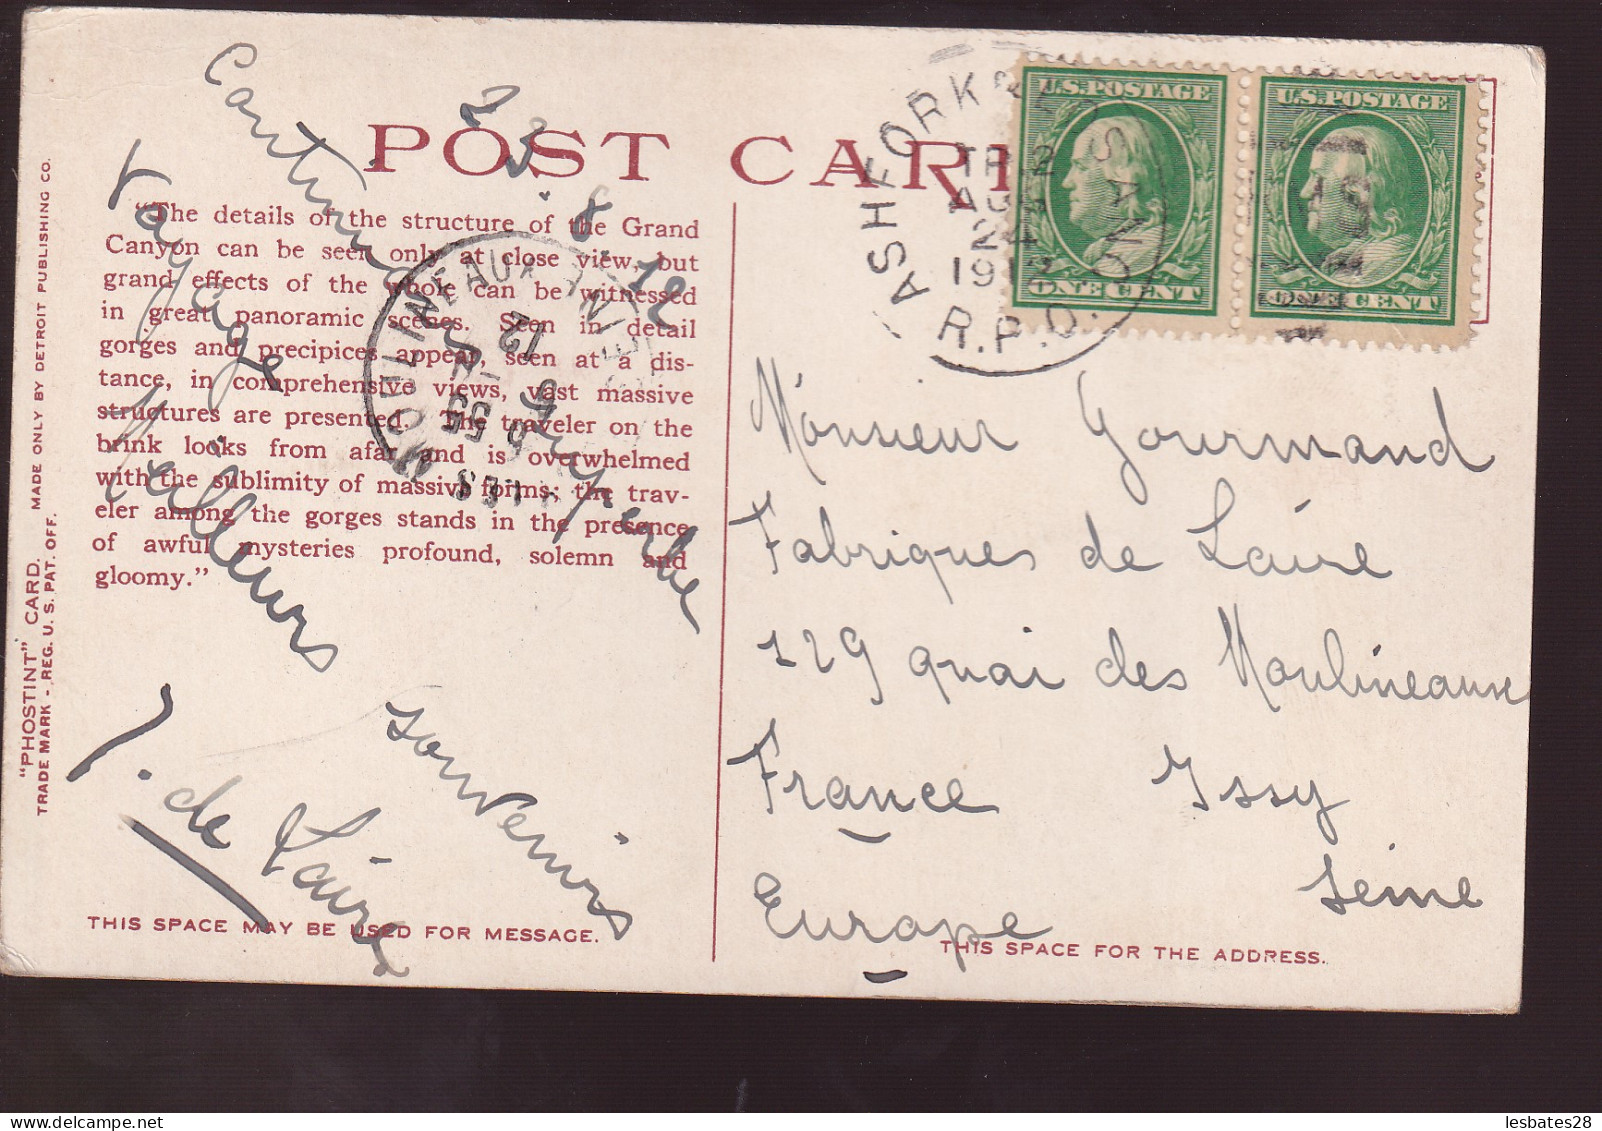 POST CARD
"The details of the structure of the Grand
Canyon can be seen only at close view, but
grand effects of the whole can be witnessed
in great panoramic scenes. Seen in detail
gorges and precipices appear, seen at a dis-
tance, in comprehensive views, vast massive
structures are presented. The traveler on the
brink looks from afar and is overwhelmed
with the sublimity of massive forms; the trav-
eler among the gorges stands in the presence
of awful mysteries profound, solemn and
gloomy."
"PHOSTINT" CARD. MADE ONLY BY DETROIT PUBLISHING CO.
TRADE MARK - REG. U. S. PAT. OFF.
23.8.12
Continue
voyage superbe
Meilleurs
souvenirs
J. de Laire
THIS SPACE MAY BE USED FOR MESSAGE.
MOULINEAUX
12
ASHFORK & LOS ANG.
TR. 2
AUG
24
1912
R.P.O.
U.S. POSTAGE
ONE CENT
U.S. POSTAGE
ONE CENT
Monsieur Gourmand
Fabriques de Laire
129 quai des Moulineaux
France Issy
Seine
Europe
THIS SPACE FOR THE ADDRESS.
lesbates28